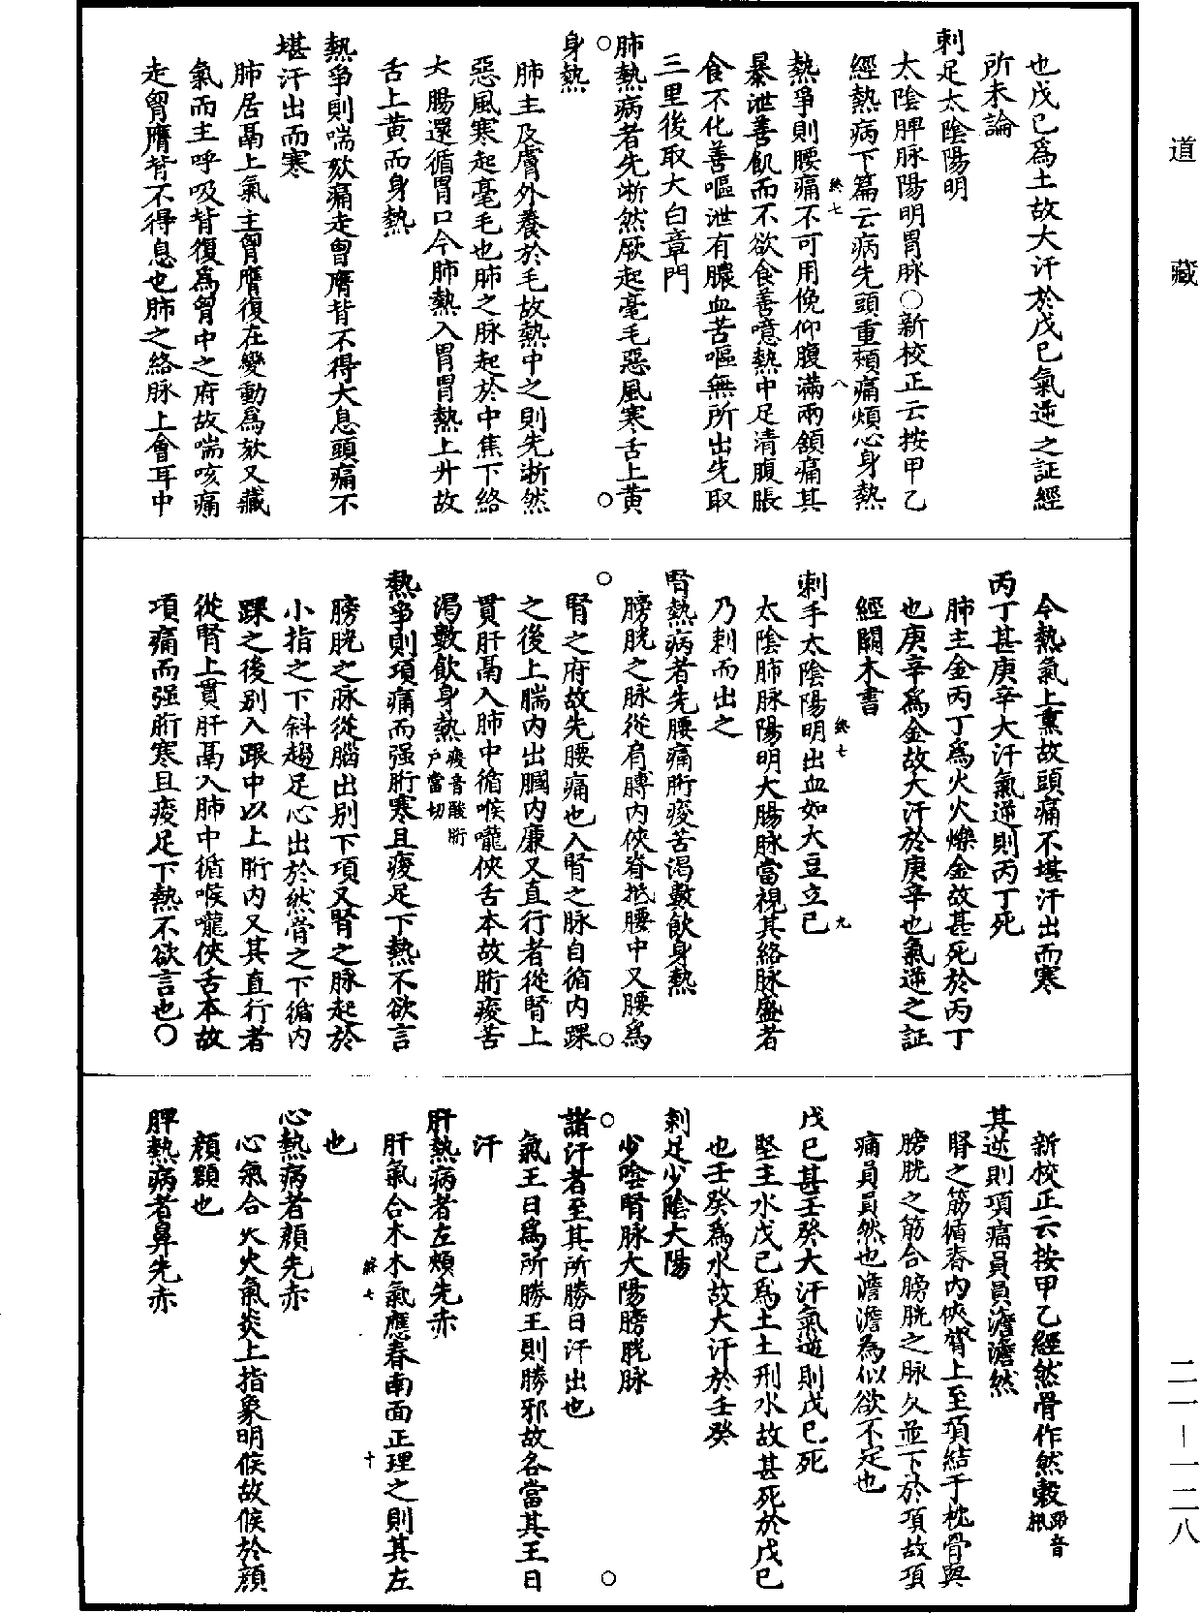 道藏
也戊己爲土故大汗於戊己氣逆之証經
所未論
刺足太陰陽明
太陰脾脉陽明胃脉○新校正云按甲乙
經熱病下篇云病先頭重頰痛煩心身熱
終七 八
熱爭則腰痛不可用俛仰腹滿兩頷痛其
暴泄善飢而不欲食善噫熱中足清腹脹
食不化善嘔泄有膿血苦嘔無所出先取
三里後取大白章門
○ ○
肺熱病者先淅然厥起毫毛惡風寒舌上黄
身熱
肺主及膚外養於毛故熱中之則先淅然
惡風寒起毫毛也肺之脉起於中焦下絡
大腸還循胃口今肺熱入胃胃熱上升故
舌上黄而身熱
熱爭則喘欬痛走胷膺背不得大息頭痛不
堪汗出而寒
肺居鬲上氣主胷膺復在變動爲欬又藏
氣而主呼吸背復爲胷中之府故喘咳痛
走胷膺背不得息也肺之絡脉上會耳中
今熱氣上熏故頭痛不堪汗出而寒
丙丁甚庚辛大汗氣逆則丙丁死
肺主金丙丁爲火火爍金故甚死於丙丁
也庚辛爲金故大汗於庚辛也氣逆之証
經闕木書
刺手太陰陽明出血如大豆立已
終七 九
太陰肺脉陽明大腸脉當視其絡脉盛者
乃刺而出之
腎熱病者先腰痛胻痠苦渴數飲身熱
膀胱之脉從肩膊内俠脊抵腰中又腰爲
○ ○
腎之府故先腰痛也入腎之脉自循内踝
之後上腨内出膕内廉又直行者從腎上
貫肝鬲入肺中循喉嚨俠舌本故胻痠苦
渴數飲身熱痠音酸胻戶當切
熱爭則項痛而强胻寒且痠足下熱不欲言
膀胱之脉從腦出别下項又腎之脉起於
小指之下斜趨足心出於然骨之下循内
踝之後别入跟中以上胻内又其直行者
從腎上貫肝鬲入肺中循喉嚨俠舌本故
項痛而强胻寒且痠足下熱不欲言也○
新校正云按甲乙經然骨作然穀
其逆則項痛員員澹澹然
腎之筋循脊内俠膂上至項結于枕骨與
膀胱之筋合膀胱之脉久並下於項故項
痛員員然也澹澹為似欲不定也
戊己甚壬癸大汗氣逆則戊己死
堅主水戊己爲土土刑水故甚死於戊己
也壬癸爲水故大汗於壬癸
刺足少陰大陽
少陰腎脉大陽膀胱脉
○ ○
諸汗者至其所勝日汗出也
氣王日爲所勝王則勝邪故各當其王日
汗
肝熱病者左頰先赤
肝氣合木木氣應春南面正理之則其左
終七 十
也
心熱病者顔先赤
心氣合火火氣炎上指象明候故候於顔
顔額也
脾熱病者鼻先赤
二一—一二八